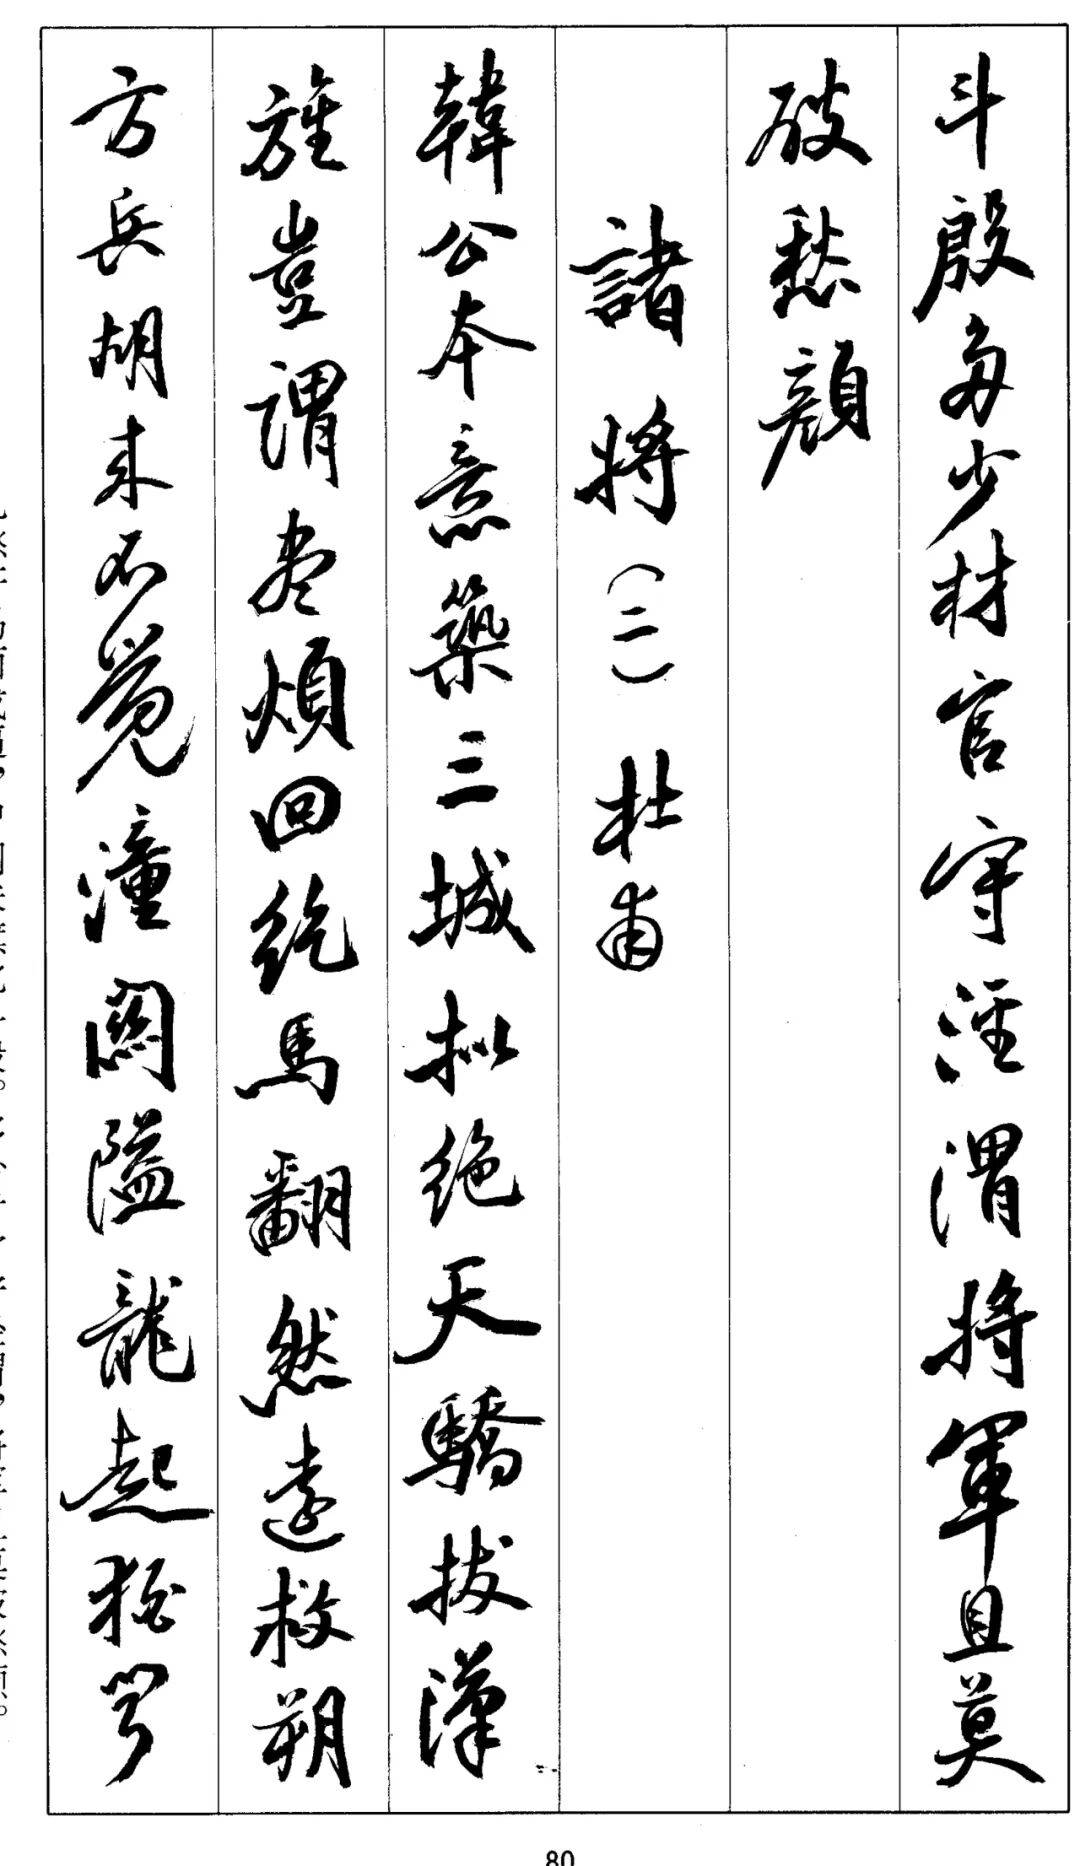 斗殷多少材官守涇渭將軍且莫
破愁顔
諸將(二) 杜甫
韓公本意築三城拟絶天驕拔漢
旌豈謂尽煩回紇馬翻然遠救朔
方兵胡来不覺潼関隘龍起猶聞
80